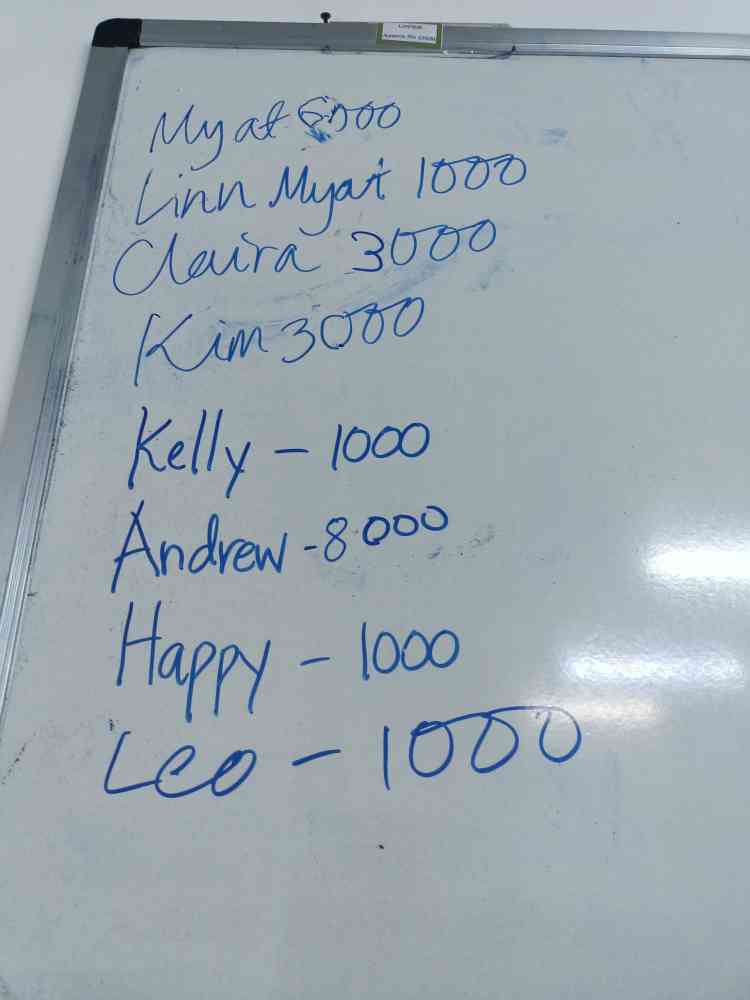 Myat 6000
Linn Myat 1000
Claira 3000
Kim 3000
Kelly - 1000
Andrew - 8000
Happy - 1000
Leo - 1000